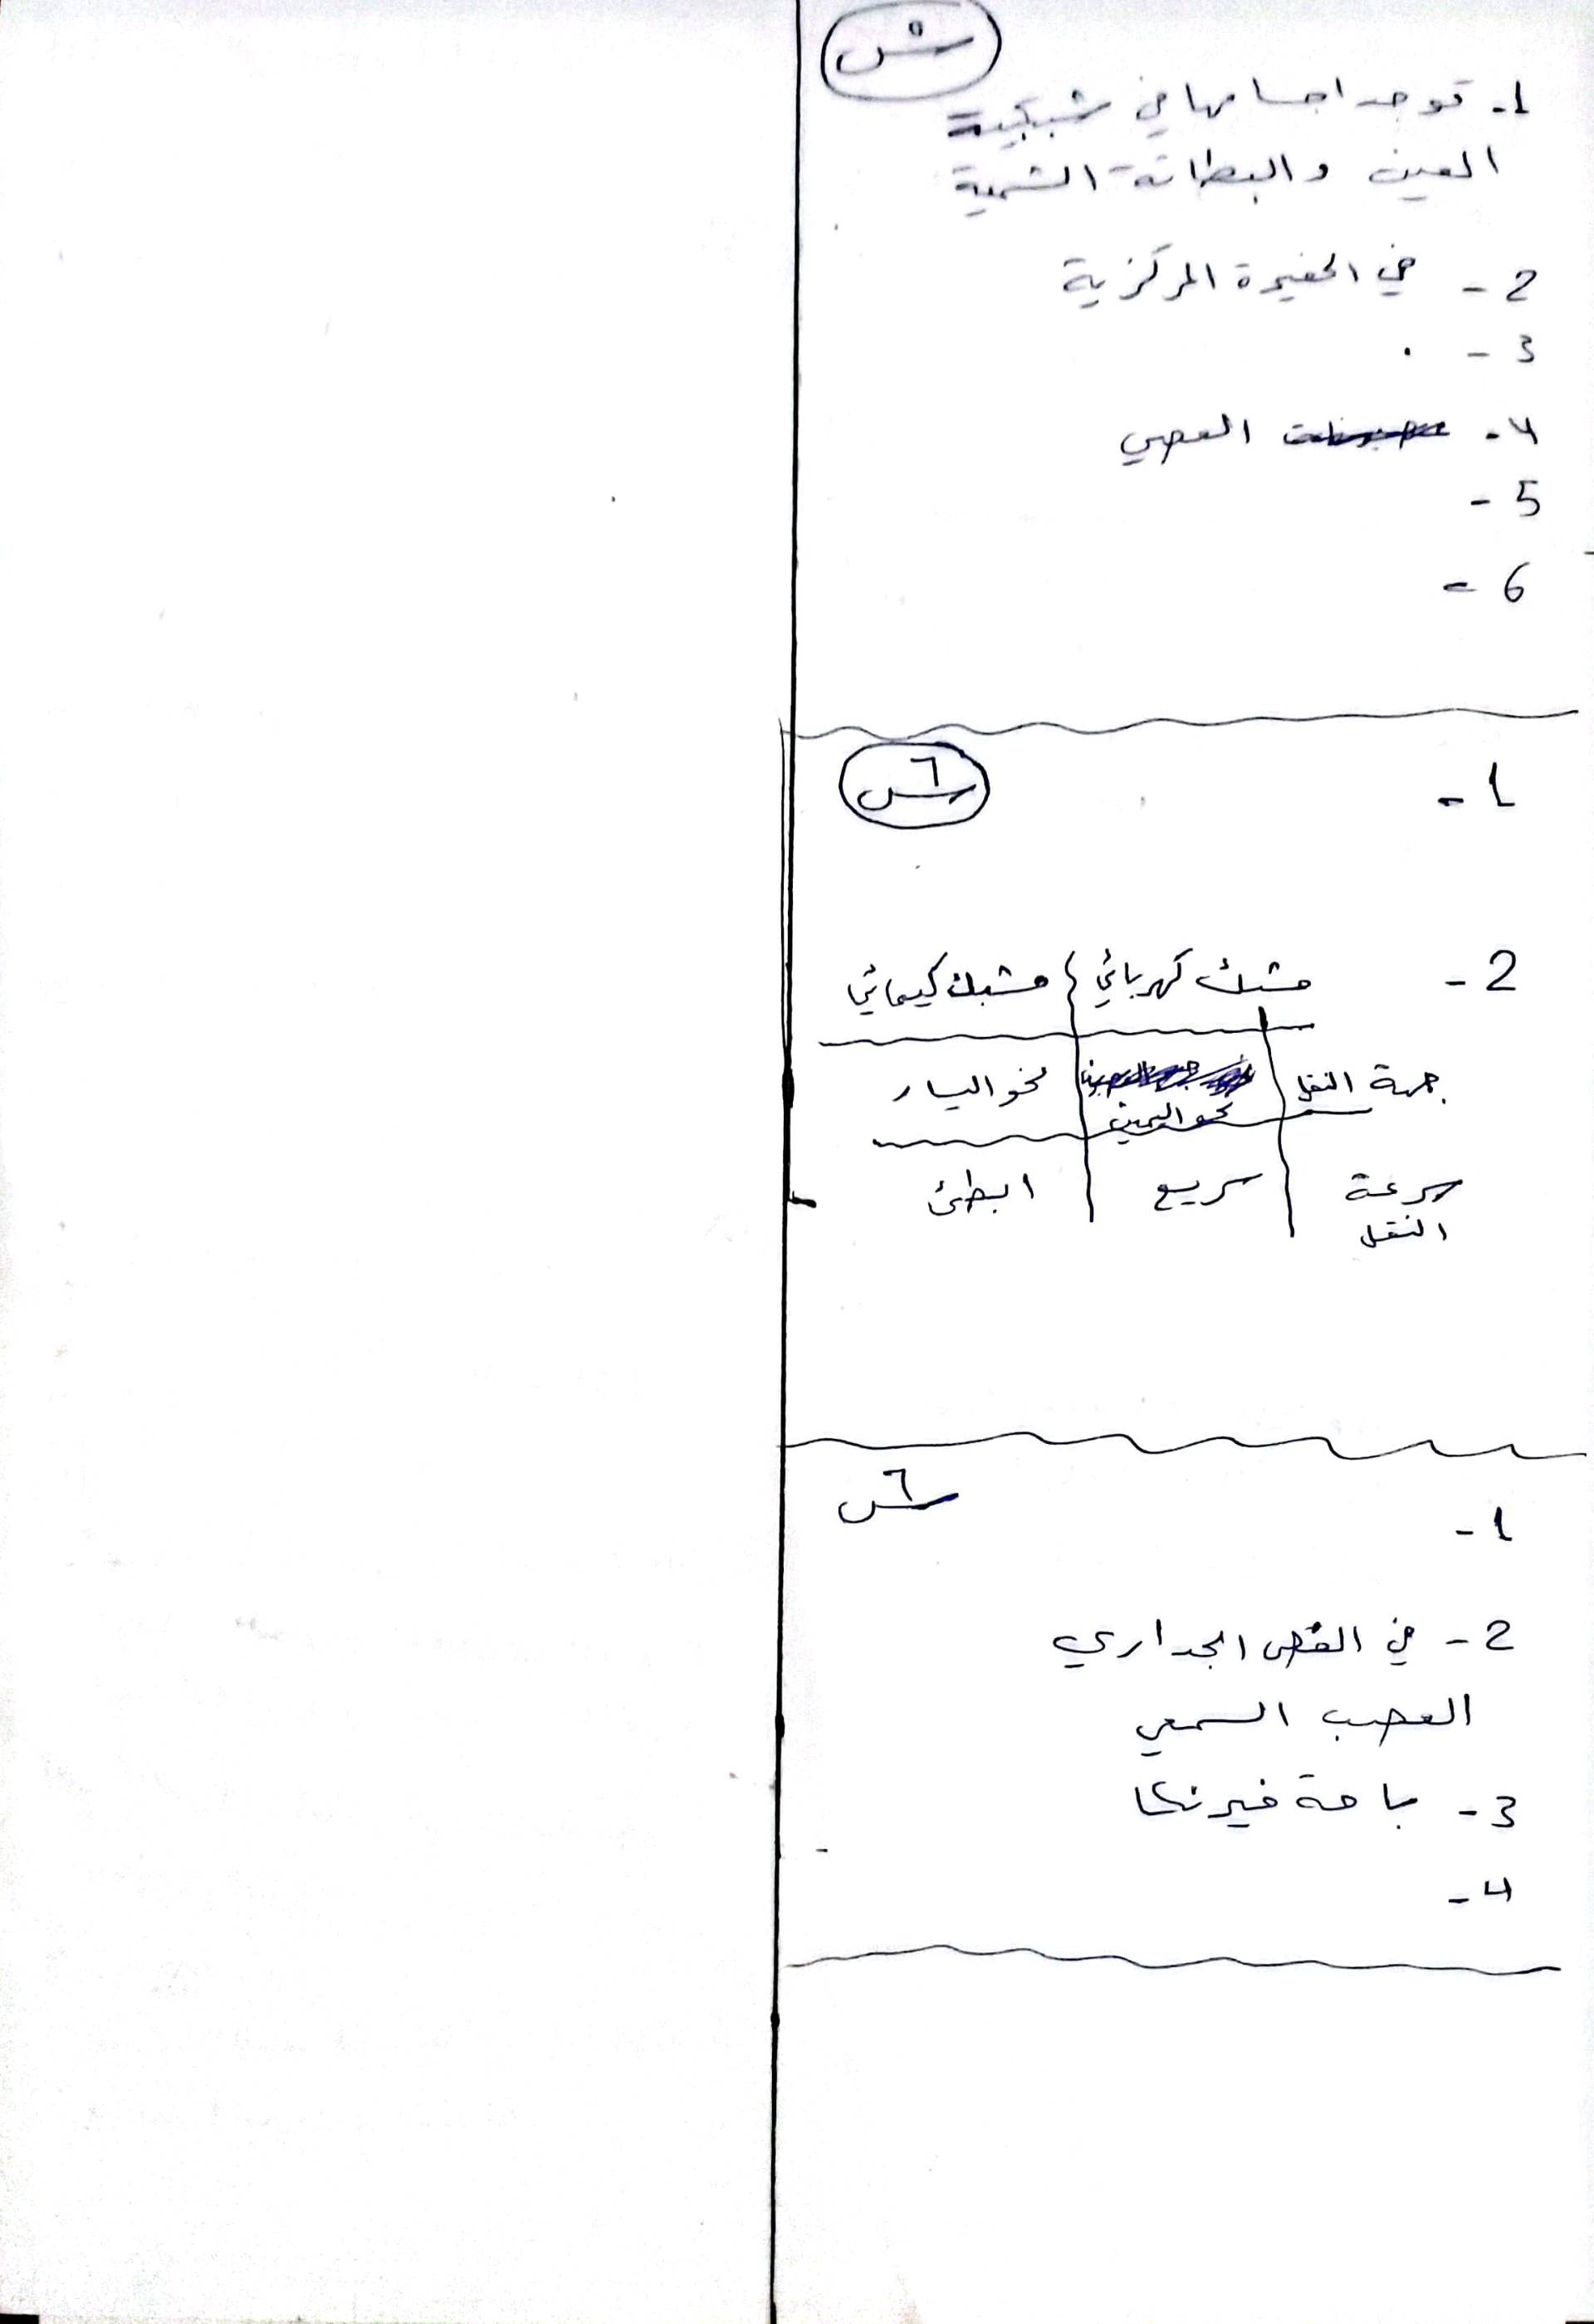 س٥
1- توجد اجسامها في شبكية
العين والبطانة الشمية
2- في الحفيرة المركزية
3- .
4- العصي
5-
6-
س٦
1-
2- مشبك كهربائي | مشبك كيميائي
جهة النقل | نحو اليمين | نحو اليسار
سرعة | سريع | ابطئ
النقل
س٦
1-
2- في الفص الجداري
العصب السمعي
3- باحة فيرنكا
4-